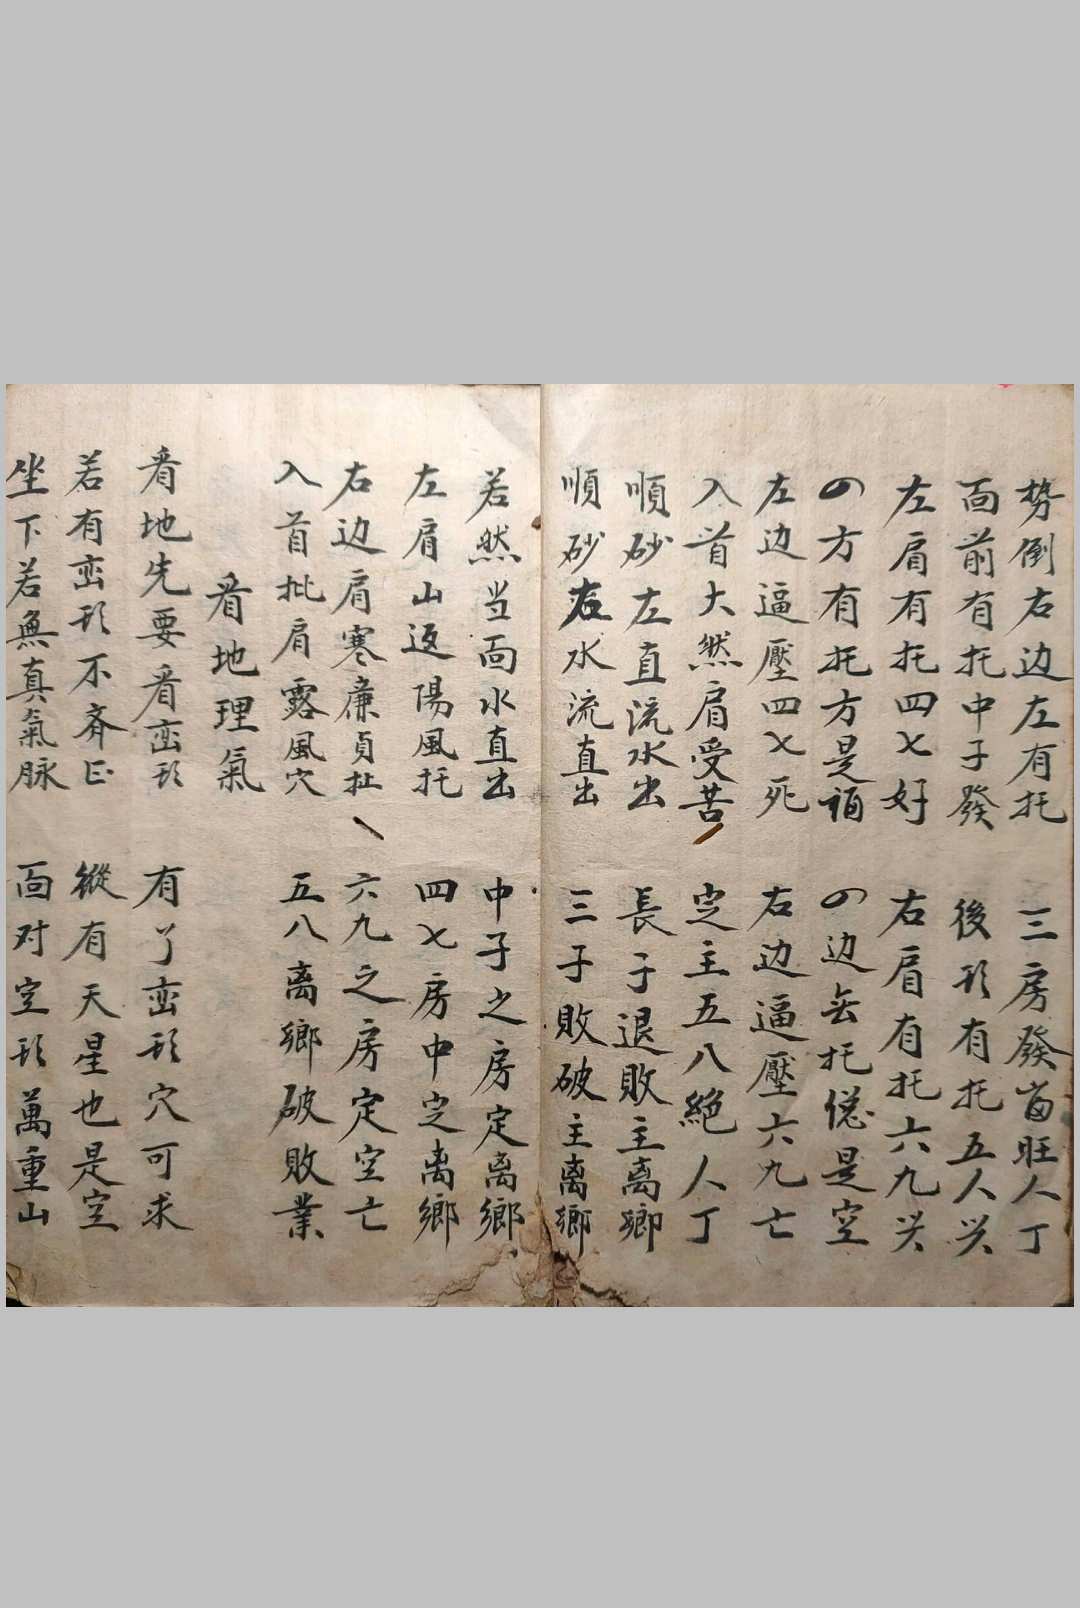 势倒右边左有托 三房發畓旺人丁
面前有托中子發 後形有托五人兴
左肩有托四七好 右肩有托六九兴
の方有托方是福 の边無托偬是空
左边逼壓四七死 右边逼壓六九亡
入首大然肩受苦 定主五八絕人丁
順砂左直流水出 長子退敗主离鄉
順砂右水流直出 三子敗破主离鄉
若然当面水直出 中子之房定离鄉
左肩山返陽風托 四七房中定离鄉
右边肩寒廉貞扯 六九之房定空亡
入首批肩露風穴 五八离鄉破敗業
看地理氣
看地先要看峦形 有了峦形穴可求
若有峦形不齐正 縱有天星也是空
坐下若無真氣脉 面对空形萬重山